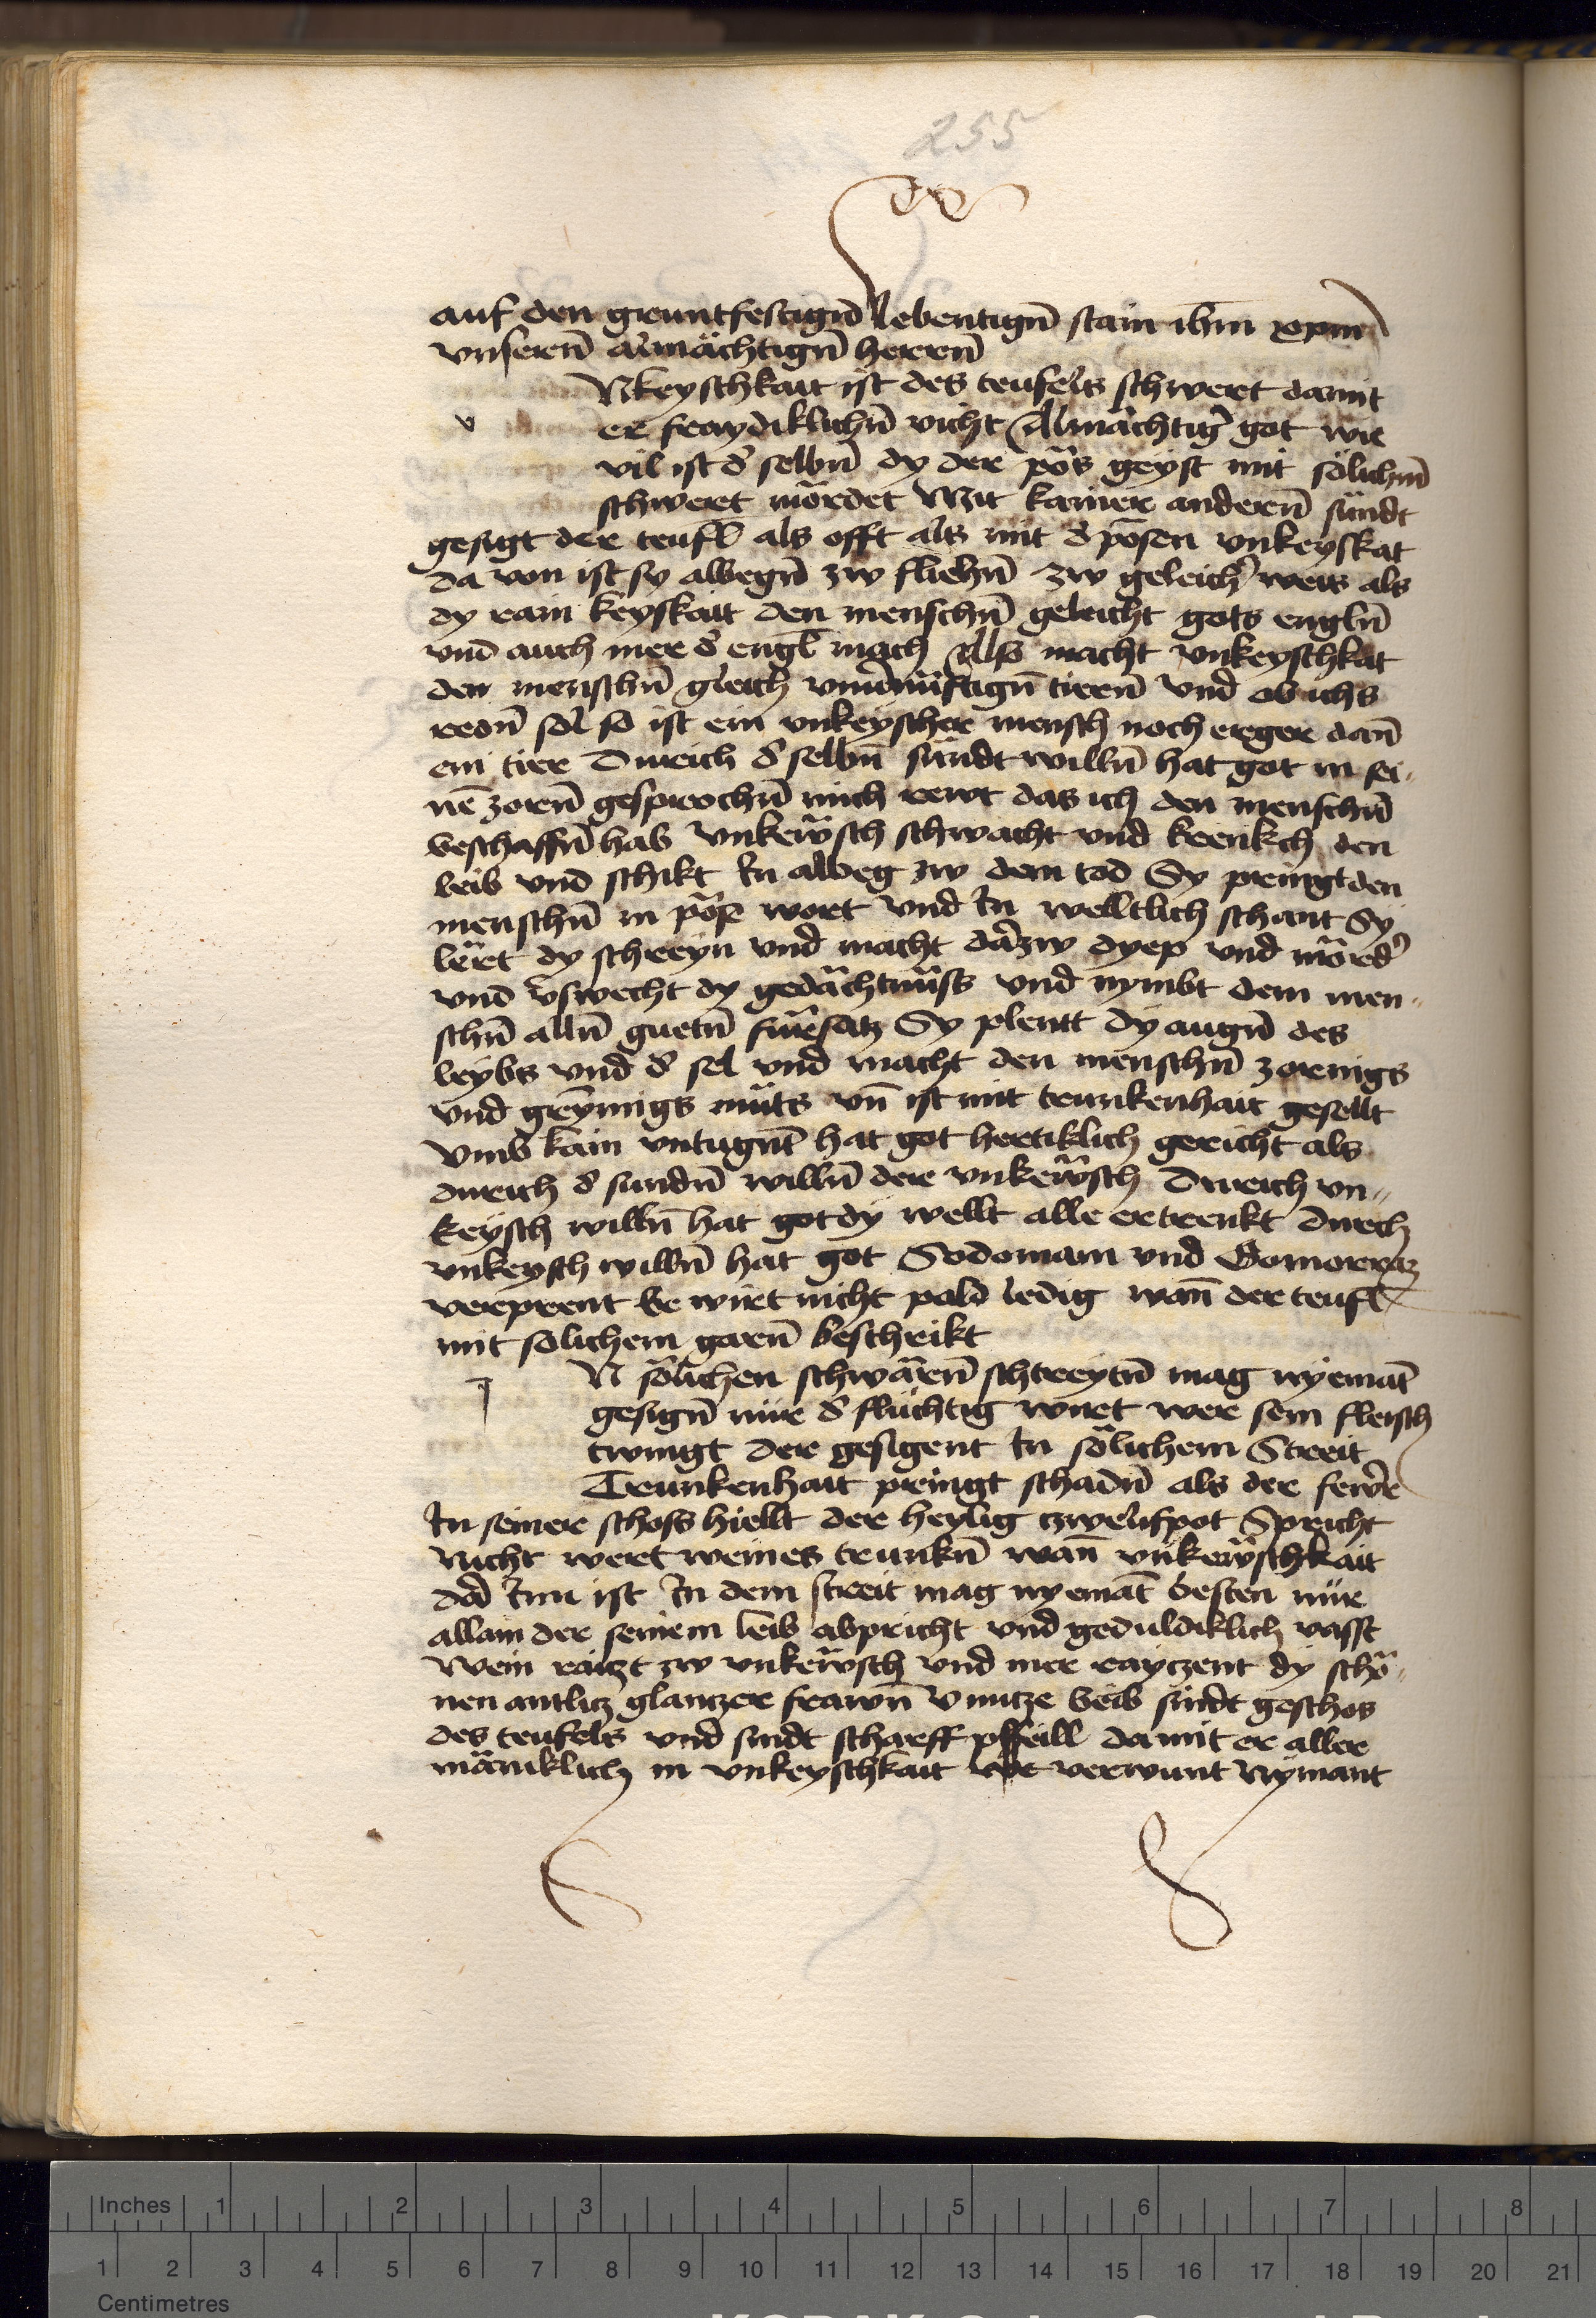 255
auf den gruntfestign̄ lebentign̄ stain ihm̄ xpm̄
vnseren̄ almächtign̄ herren̄
Nkeyschkait ist des teufels schwert damit
v er fraydiklichn̄ vicht Almächtig̉ got wie
vil ist d̉ selbn̄ dy der pös geyst mit sölichm̄
schwert mördet Mit kainer anderen̄ sündt
gesigt der teufl̄ als offt als mit d̉ pösen vnkeyskat
da von ist sy albegn̄ zw fliehn̄ zw geleich̉ weis als
dy rain keyskait den menschn̄ geleicht gots engln̄
vnd auch mer d̉ engl̄ mach Also macht vnkeyschkat
den menschn̄ gleich vnuernüftign̄ tieren̄ vnd ob ichs
redn̄ sol so ist ein vnkeyscher mensch noch erger dan̄
ein tier Durich d̉ selbn̄ sündt willn̄ hat got in sei-
nē zoren̄ gesprochn̄ mich rewt das ich den menschn̄
beschaffn̄ hab vnkewsch schwacht vnd krenkch den
leib vnd schikt In albeg zw dem tod Sy pringt den
menschn̄ in pöse wort vnd In welltlich schant Sy
lert dy schreyn vnd macht dazw dyep vnd mörd̉
vnd v̉swecht dy gedächtnüss vnd nymbt dem men-
schn̄ alln̄ guetn̄ fürsatz Sy plentt dy augn̄ des
leybs vnd d̉ sel vnd macht den menschn̄ zornigs
vnd grymigs müts vn̄ ist mit trunkenhait gesellt
vmb kain vntugnt̄ hat got hertiklich gericht als
durich d̉ sundn̄ willn̄ der vnkewsch Durich vn-
keysch willn̄ hat got dy wellt alle ertrenkt durch
vnkeysch willn̄ hat got Sodomam vnd Gomorraz
verprent Er wirt nicht pald ledig wan̄ der teufl̄
mit solichem garn̄ beschrikt
J N sölichen schwären̄ schtreytn̄ mag nyemat̄
gesign̄ nür d̉ flüchtig wirt wer sein fleisch
twingt der gesigent In sölichem Streit
Trunkenhait pringt schadn̄ als der fewr
In seiner schoss hiellt der heylig zwelifpot Spricht
Nicht wert weines trunkn̄ wan̄ vnkewschkait
dar Inn ist In dem streit mag nyemat̄ besten nür
allain der seinem leib abpricht vnd geduldiklich vasst
Wein raitzt zw vnkewsch vnd mer rayczent dy schö-
nen antlitz glantzer frawn̄ vnutze beib sindt geschos
des teufels vnd sindt scharff pffeill damit er aller
mäniklich in vnkeyschkait verwunt Nymant